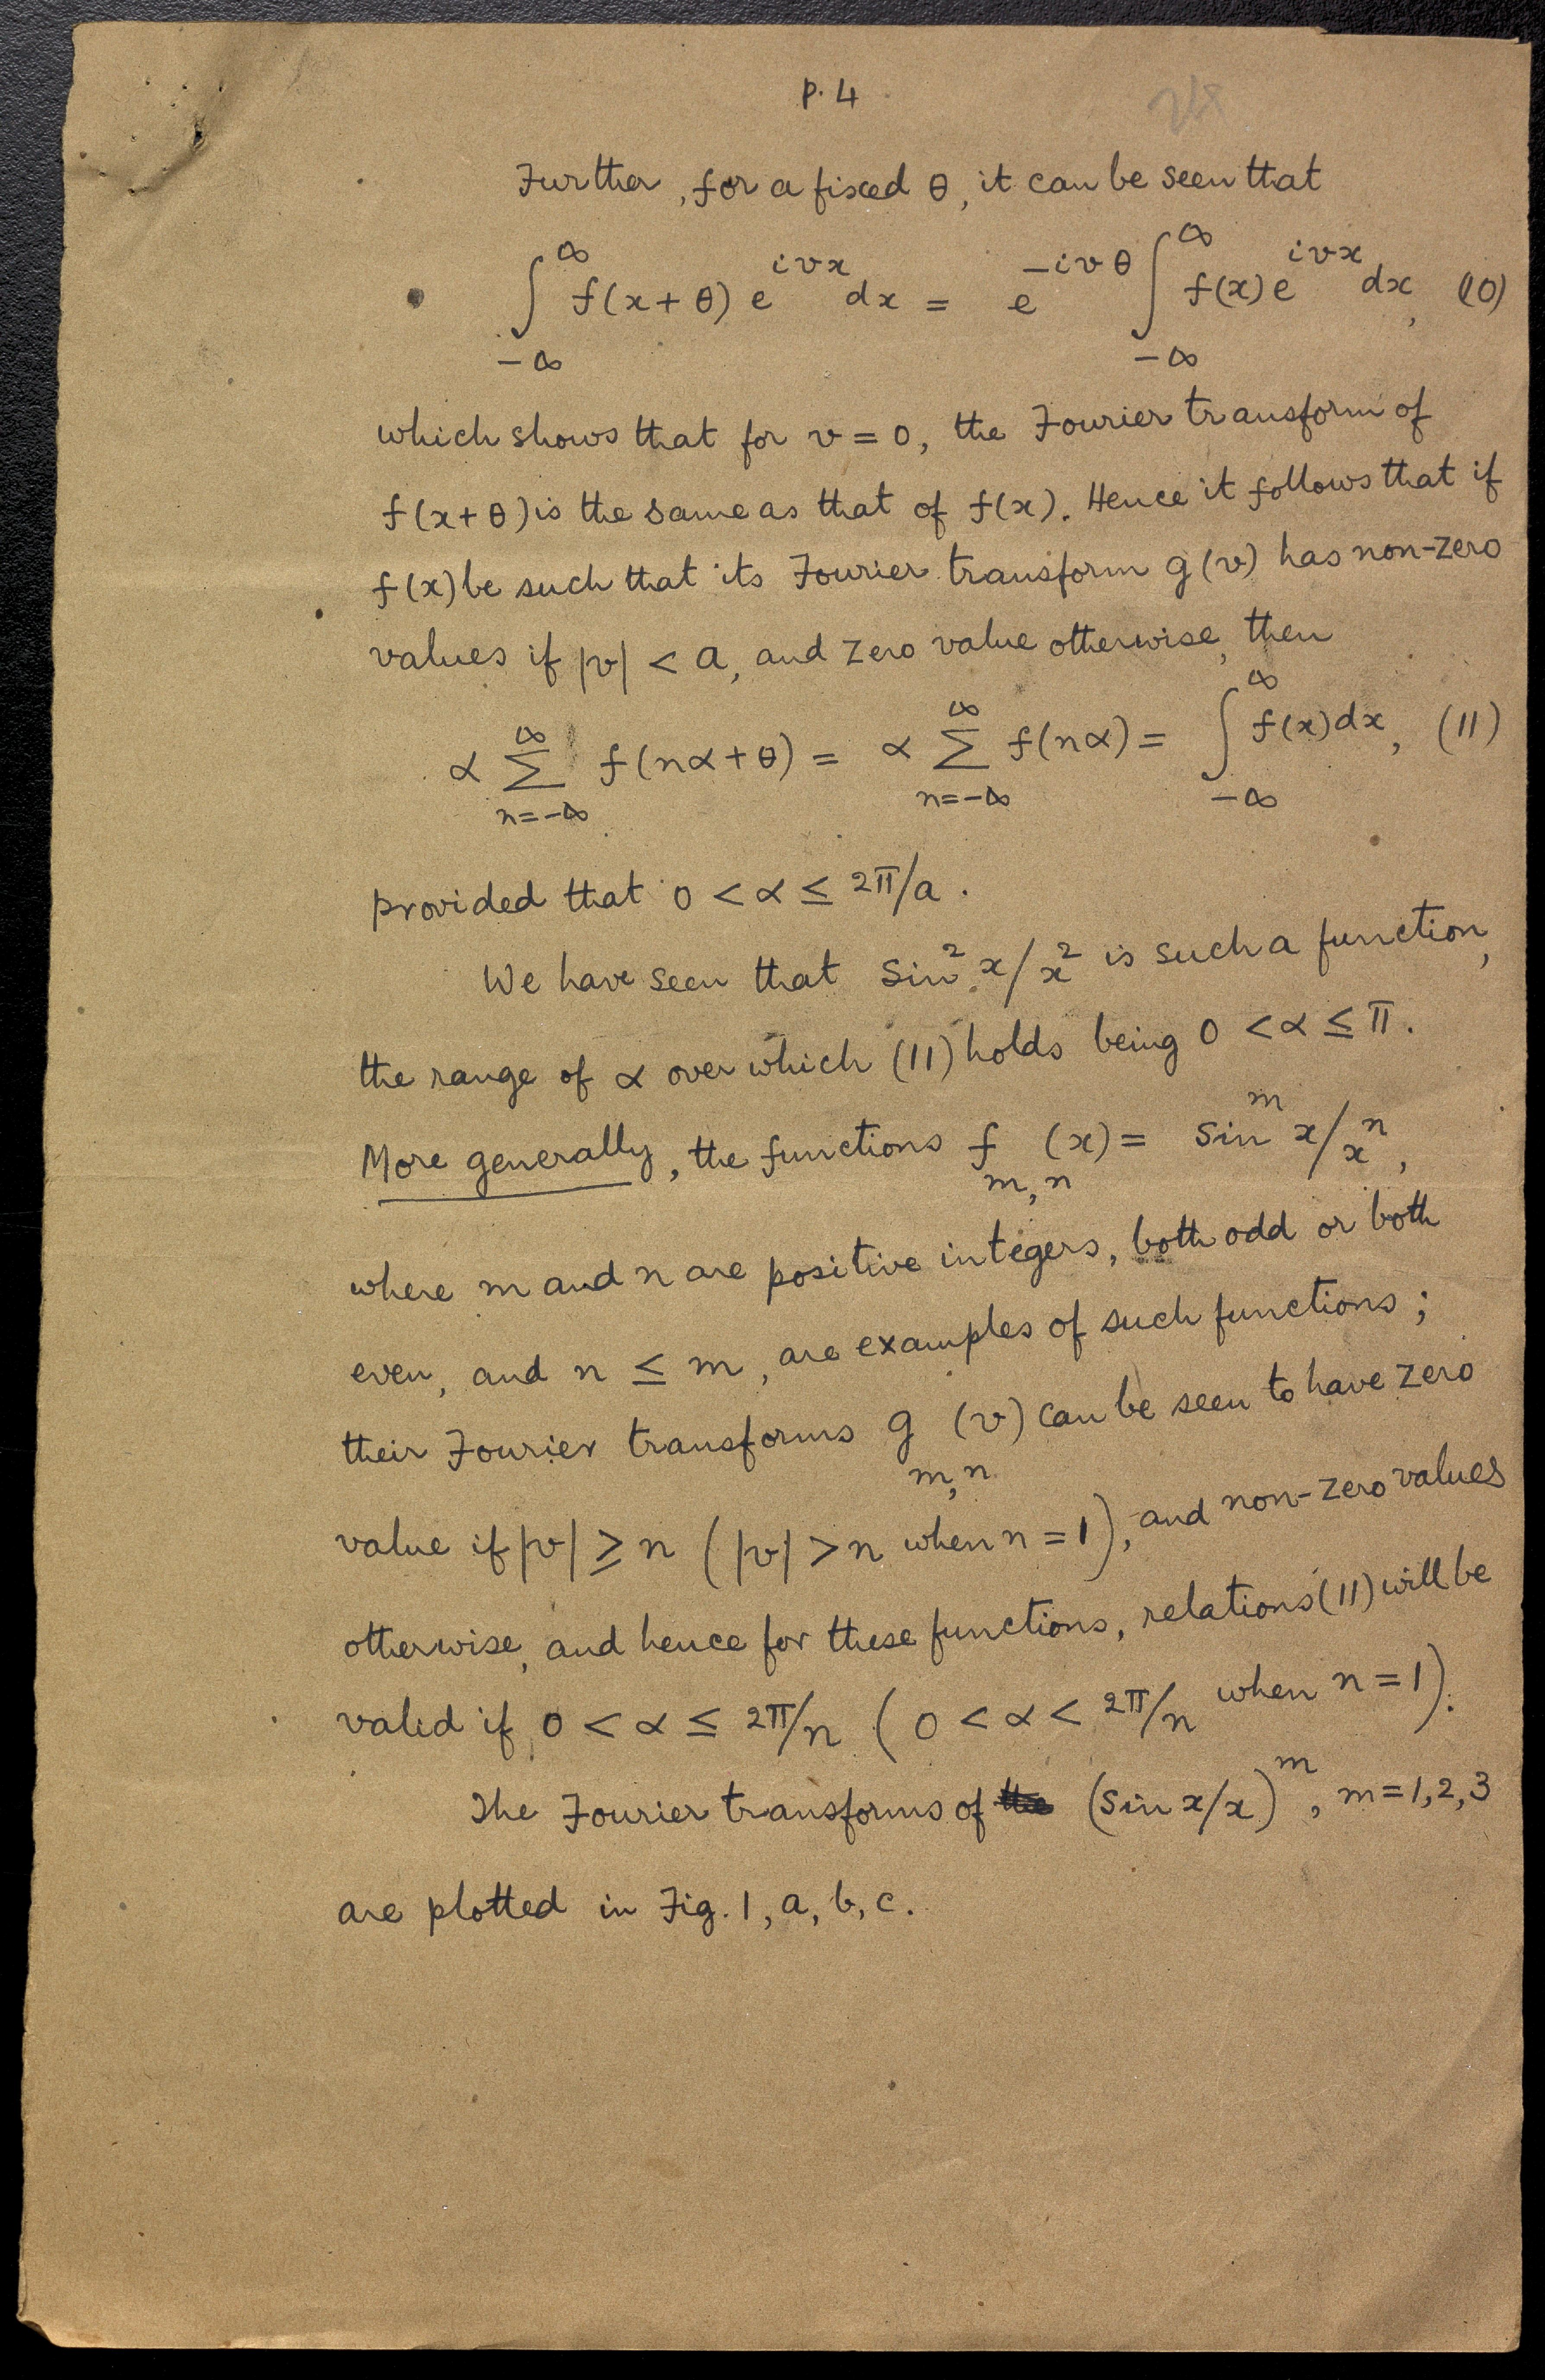 p. 4
Further, for a fixed θ, it can be seen that
∫_{-∞}^{∞} f(x+θ) e^{ivx} dx = e^{-ivθ} ∫_{-∞}^{∞} f(x) e^{ivx} dx, (10)
which shows that for v = 0, the Fourier transform of
f(x+θ) is the same as that of f(x). Hence it follows that if
f(x) be such that its Fourier transform g(v) has non-zero
values if |v| < a, and zero value otherwise, then
α ∑_{n=-∞}^{∞} f(nα+θ) = α ∑_{n=-∞}^{∞} f(nα) = ∫_{-∞}^{∞} f(x) dx, (11)
provided that 0 < α ≤ 2π/a.
We have seen that sin² x/x² is such a function,
the range of α over which (11) holds being 0 < α ≤ π.
More generally, the functions f_{m,n}(x) = sin^m x/x^n,
where m and n are positive integers, both odd or both
even, and n ≤ m, are examples of such functions;
their Fourier transforms g_{m,n}(v) can be seen to have zero
value if |v| ≥ n (|v| > n when n = 1), and non-zero values
otherwise, and hence for these functions, relations (11) will be
valid if 0 < α ≤ 2π/n (0 < α < 2π/n when n = 1).
The Fourier transforms of (sin x/x)^m, m = 1, 2, 3
are plotted in Fig. 1, a, b, c.